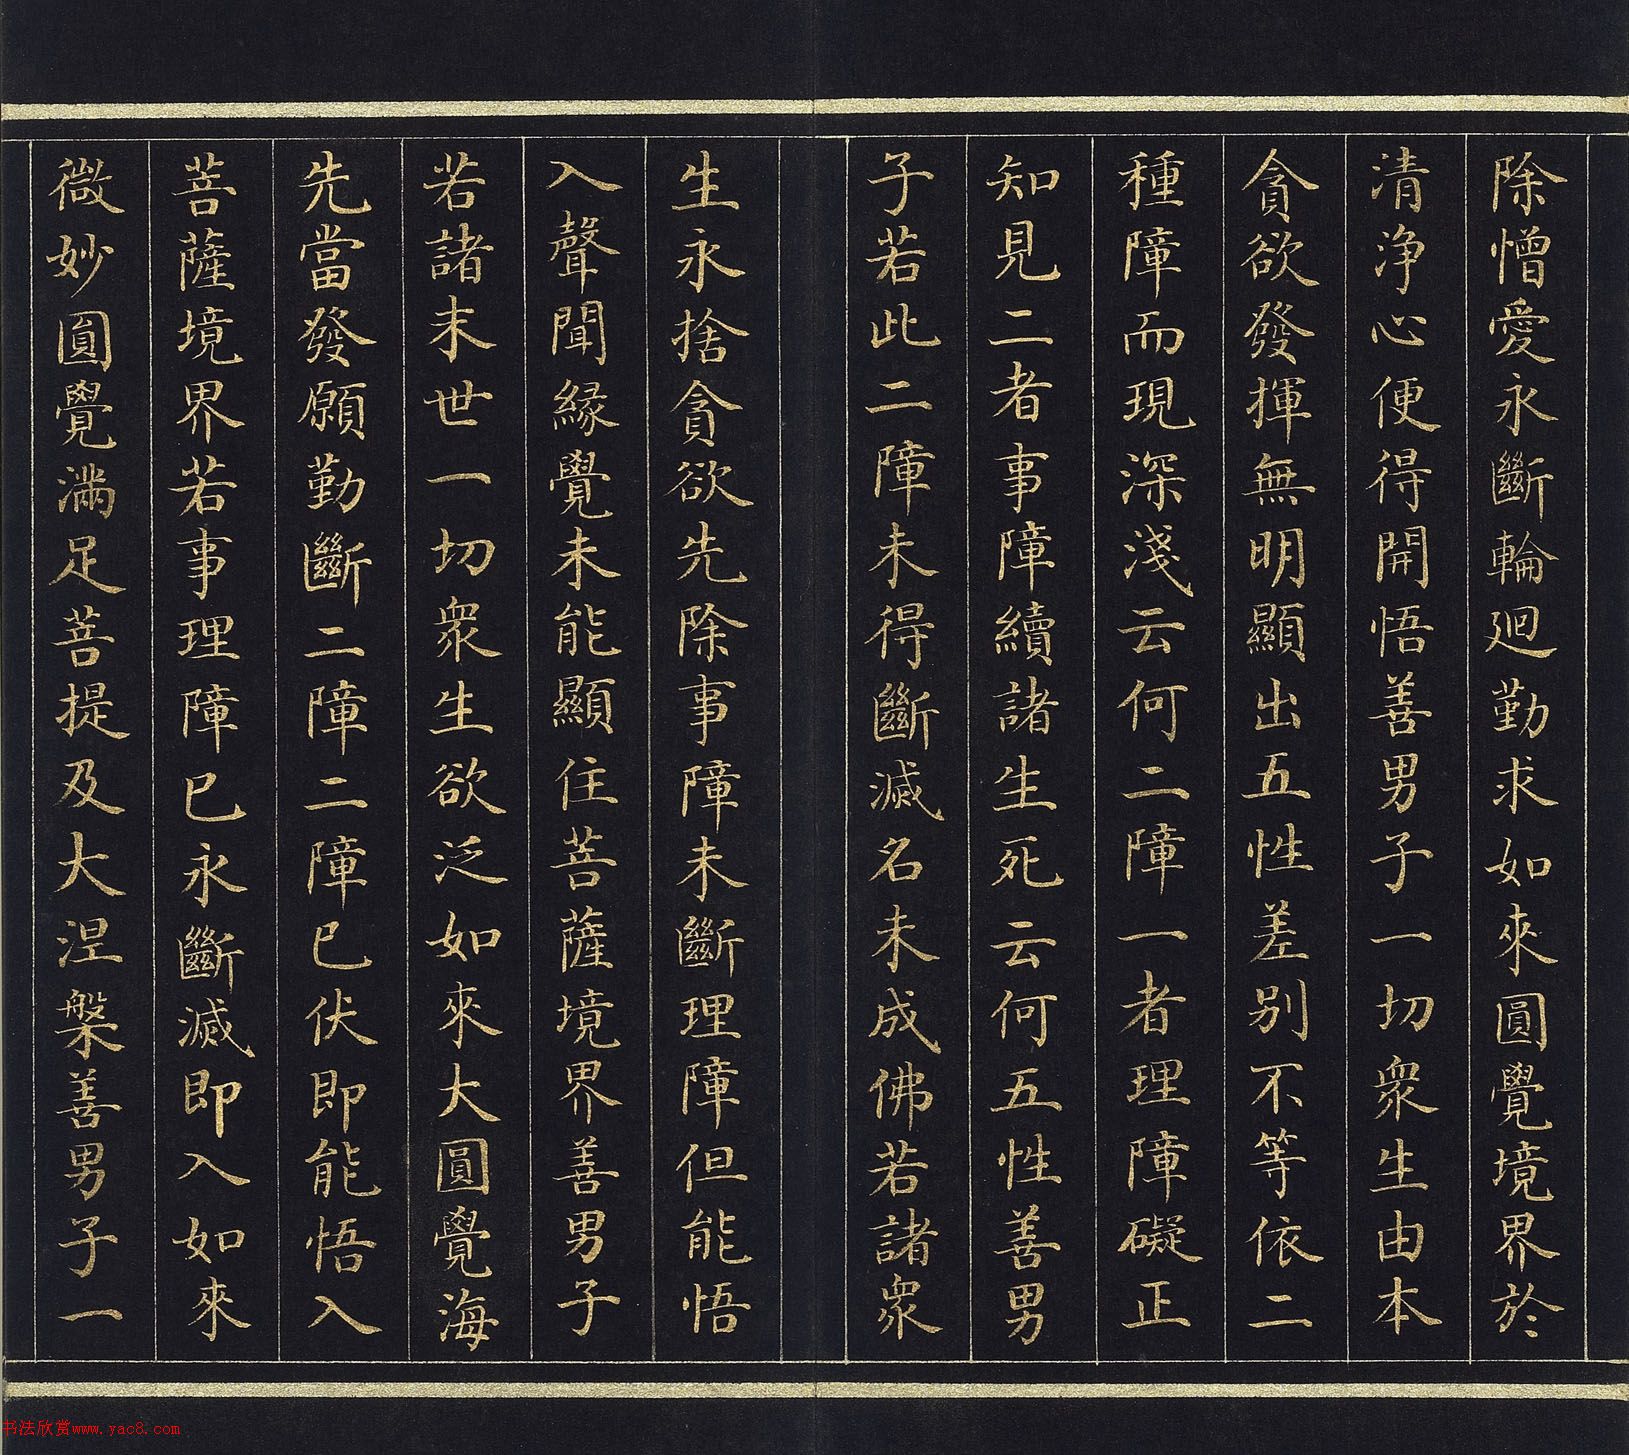 除憎愛永斷輪廻勤求如來圓覺境界於
清淨心便得開悟善男子一切眾生由本
貪欲發揮無明顯出五性差別不等依二
種障而現深淺云何二障一者理障礙正
知見二者事障續諸生死云何五性善男
子若此二障未得斷滅名未成佛若諸眾
生永捨貪欲先除事障未斷理障但能悟
入聲聞緣覺未能顯住菩薩境界善男子
若諸末世一切眾生欲泛如來大圓覺海
先當發願勤斷二障二障已伏即能悟入
菩薩境界若事理障已永斷滅即入如來
微妙圓覺滿足菩提及大涅槃善男子一
书法欣赏www.yac8.com